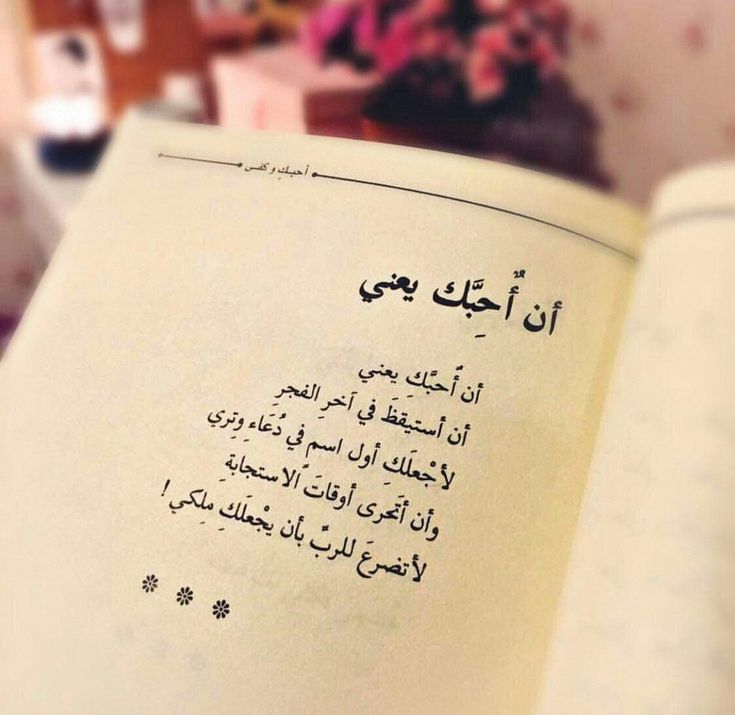 أحبك وكفى
أن أُحِبَّك يعني
أن أُحبَّكِ يعني
أن أستيقظَ في آخرِ الفجرِ
لأجْعلَكِ أول اسم في دُعَاءِ وِتري
وأن أتَحرى أوقاتَ الاستجابةِ
لأتضرعَ للربِّ بأن يجْعلَكِ مِلكي!